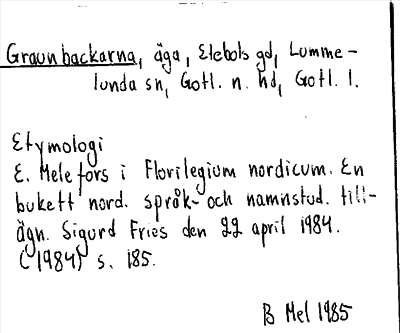 Graunbackarna, äga, Stebols gd, Lumme-
lunda sn, Gotl. n. hd, Gotl. l.
Etymologi
E. Melefors i Florilegium nordicum. En
bukett nord. språk- och namnstud. till-
ägn. Sigurd Fries den 22 april 1984.
(1984) s. 185.
B Mel 1985